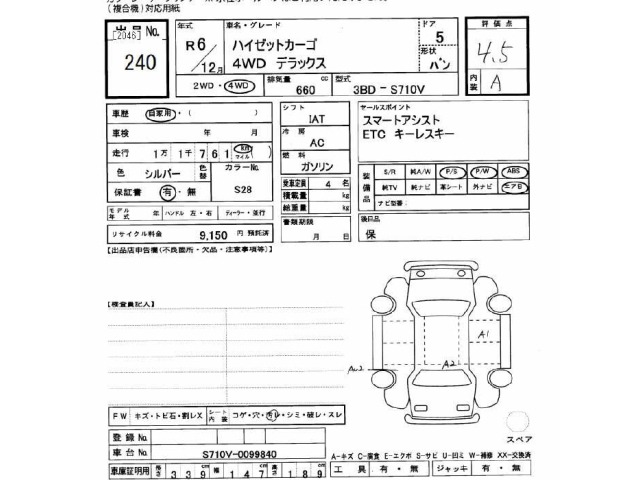 (複合機)対応用紙
出品 No.
[2046]
240
年式
R6
12月
車名・グレード
ハイゼットカーゴ
4WD デラックス
ドア
5
形状
バン
評価点
4.5
内装
A
2WD・4WD
排気量
660 cc
型式
3BD-S710V
車歴 自家用・( )
車検 年 月
走行 1万1千761 km マイル ( )
色 シルバー 色替
カラーNo.
S28
保証書 有・無
モデル年式 年 ハンドル 左・右 ディーラー・並行
リサイクル料金 9,150 円 預託済
シフト
IAT
冷房
AC
燃料
ガソリン
乗車定員 4 名
積載量 kg
総重量 kg
書類期限
月 日
セールスポイント
スマートアシスト
ETC キーレスキー
装備品
S/R 純A/W P/S P/W ABS
純TV 純ナビ 革シート 外ナビ エアB
ナビ型番:
後日品
保
【出品店申告欄(不良箇所・欠品・注意事項等)】
【検査員記入】
A1
A2
FW キズ・トビ石・割レX
シート内装 コゲ・穴・汚レ・シミ・破レ・スレ
登録 No.
車台 No. S710V-0099840
車庫証明用 長さ 339 cm 幅 147 cm 高さ 189 cm
スペア
A-キズ C-腐食 E-エクボ S-サビ U-凹ミ W-補修 XX-交換済
工具 有・無 ジャッキ 有・無